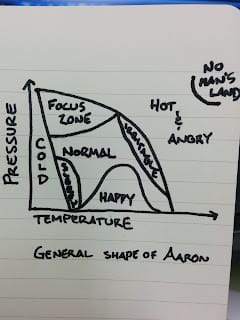 NO
MAN'S
LAND
FOCUS
ZONE
HOT
&
ANGRY
PRESSURE
COLD
NORMAL
HAPPY
TEMPERATURE
GENERAL SHAPE OF AARON